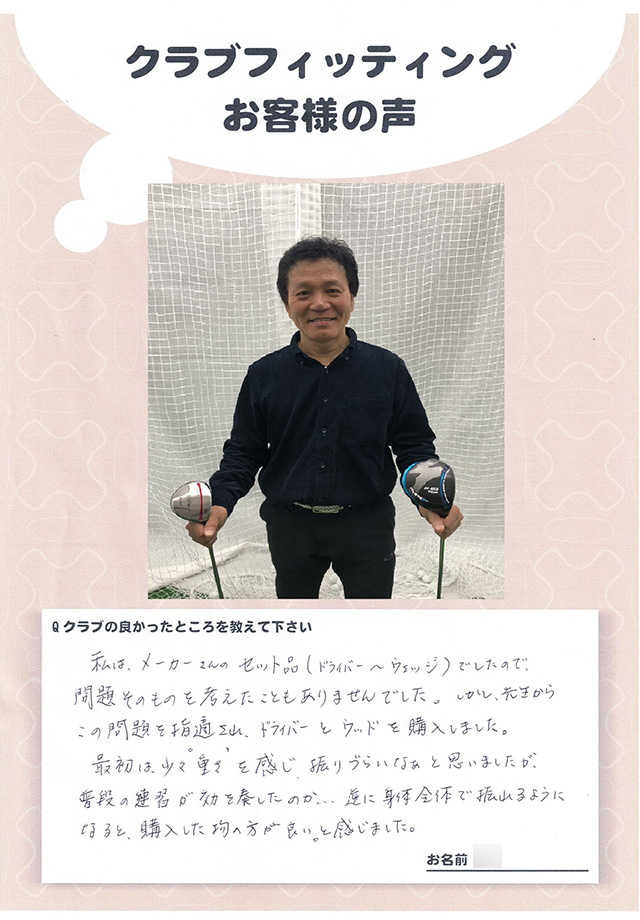 クラブフィッティング
お客様の声
Q クラブの良かったところを教えて下さい
私は、メーカーさんの セット品(ドライバー〜ウェッジ)でしたので、
問題そのものを考えたこともありませんでした。しかし、先生から
この問題を指適され、ドライバーとウッドを購入しました。
最初は少々"重さ"を感じ、振りづらいなぁと思いましたが、
普段の練習が効を奏したのか... 逆に身体全体で振れるように
なると、購入した物の方が良い。と感じました。
お名前